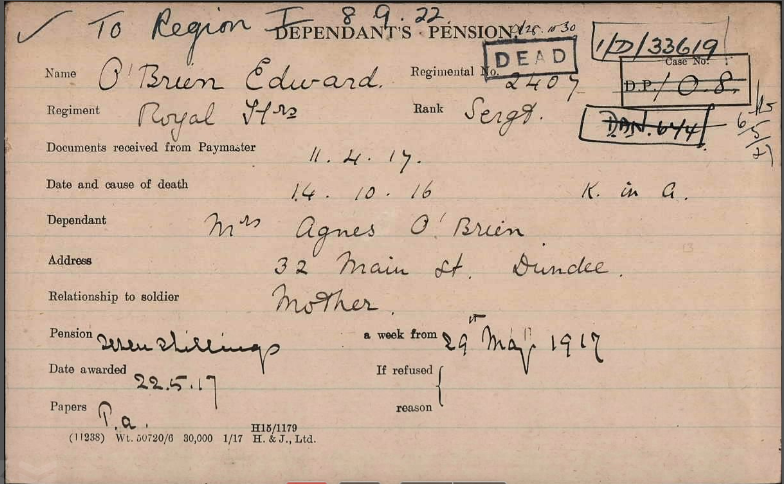 ✓ To Region I 8.9.22
DEPENDANT'S PENSION.
1/D/33619
DEAD
Case No.
D.P./O.8.
Name O'Brien Edward. Regimental No. 2407
Regiment Royal Hrs Rank Sergt.
DAN.644
Documents received from Paymaster 11.4.17.
Date and cause of death 14.10.16 K. in A.
Dependant Mrs Agnes O'Brien
Address 32 Main St. Dundee.
13
Relationship to soldier Mother.
Pension seven shillings a week from 29th May 1917
Date awarded 22.5.17 If refused
reason
Papers P.a.
H15/1179
(11238) Wt. 50720/6 30,000 1/17 H. & J., Ltd.